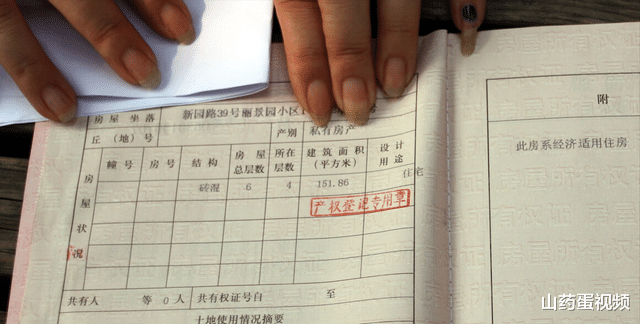 房屋坐落 新园路39号丽景园小区
丘（地）号 产别 私有房产
幢号 房号 结构 房屋总层数 所在层数 建筑面积（平方米） 设计用途
房屋状况
砖混 6 4 151.86 住宅
产权登记专用章
共有人 等0人 共有权证号自 至
土地使用情况摘要
附
此房系经济适用住房
山药蛋视频